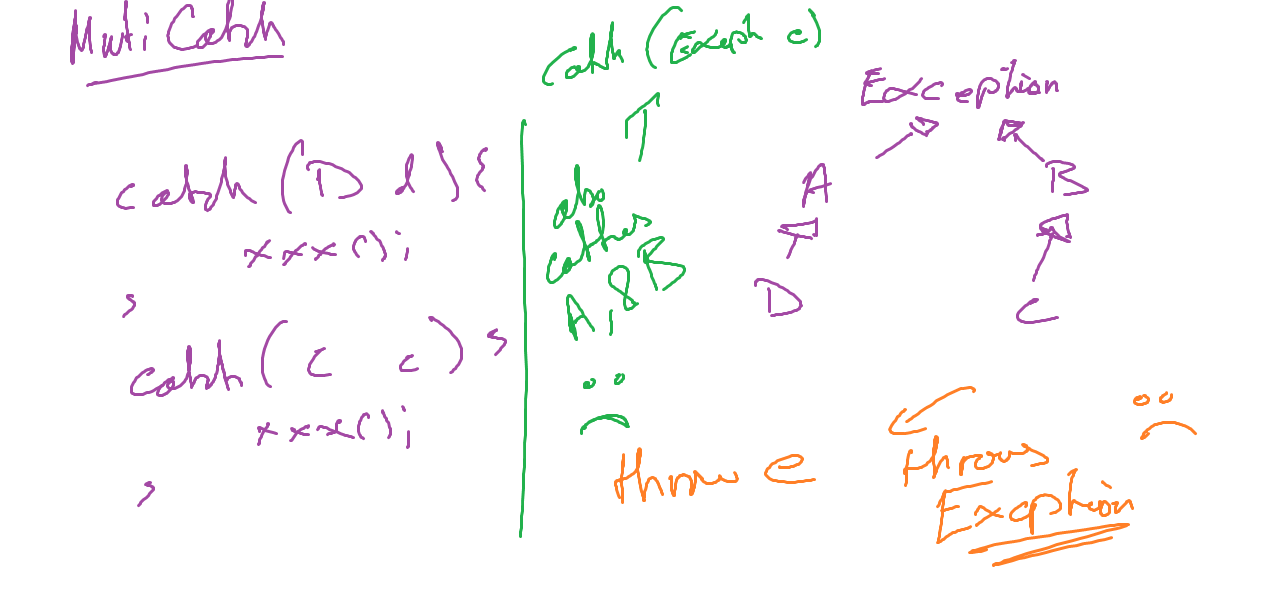 Multi Catch
catch (D d) {
xxx();
}
catch (C c) {
xxx();
}
catch (Except e)
also
catches
A, & B
throw e
Exception
A B
D C
throws
Exception